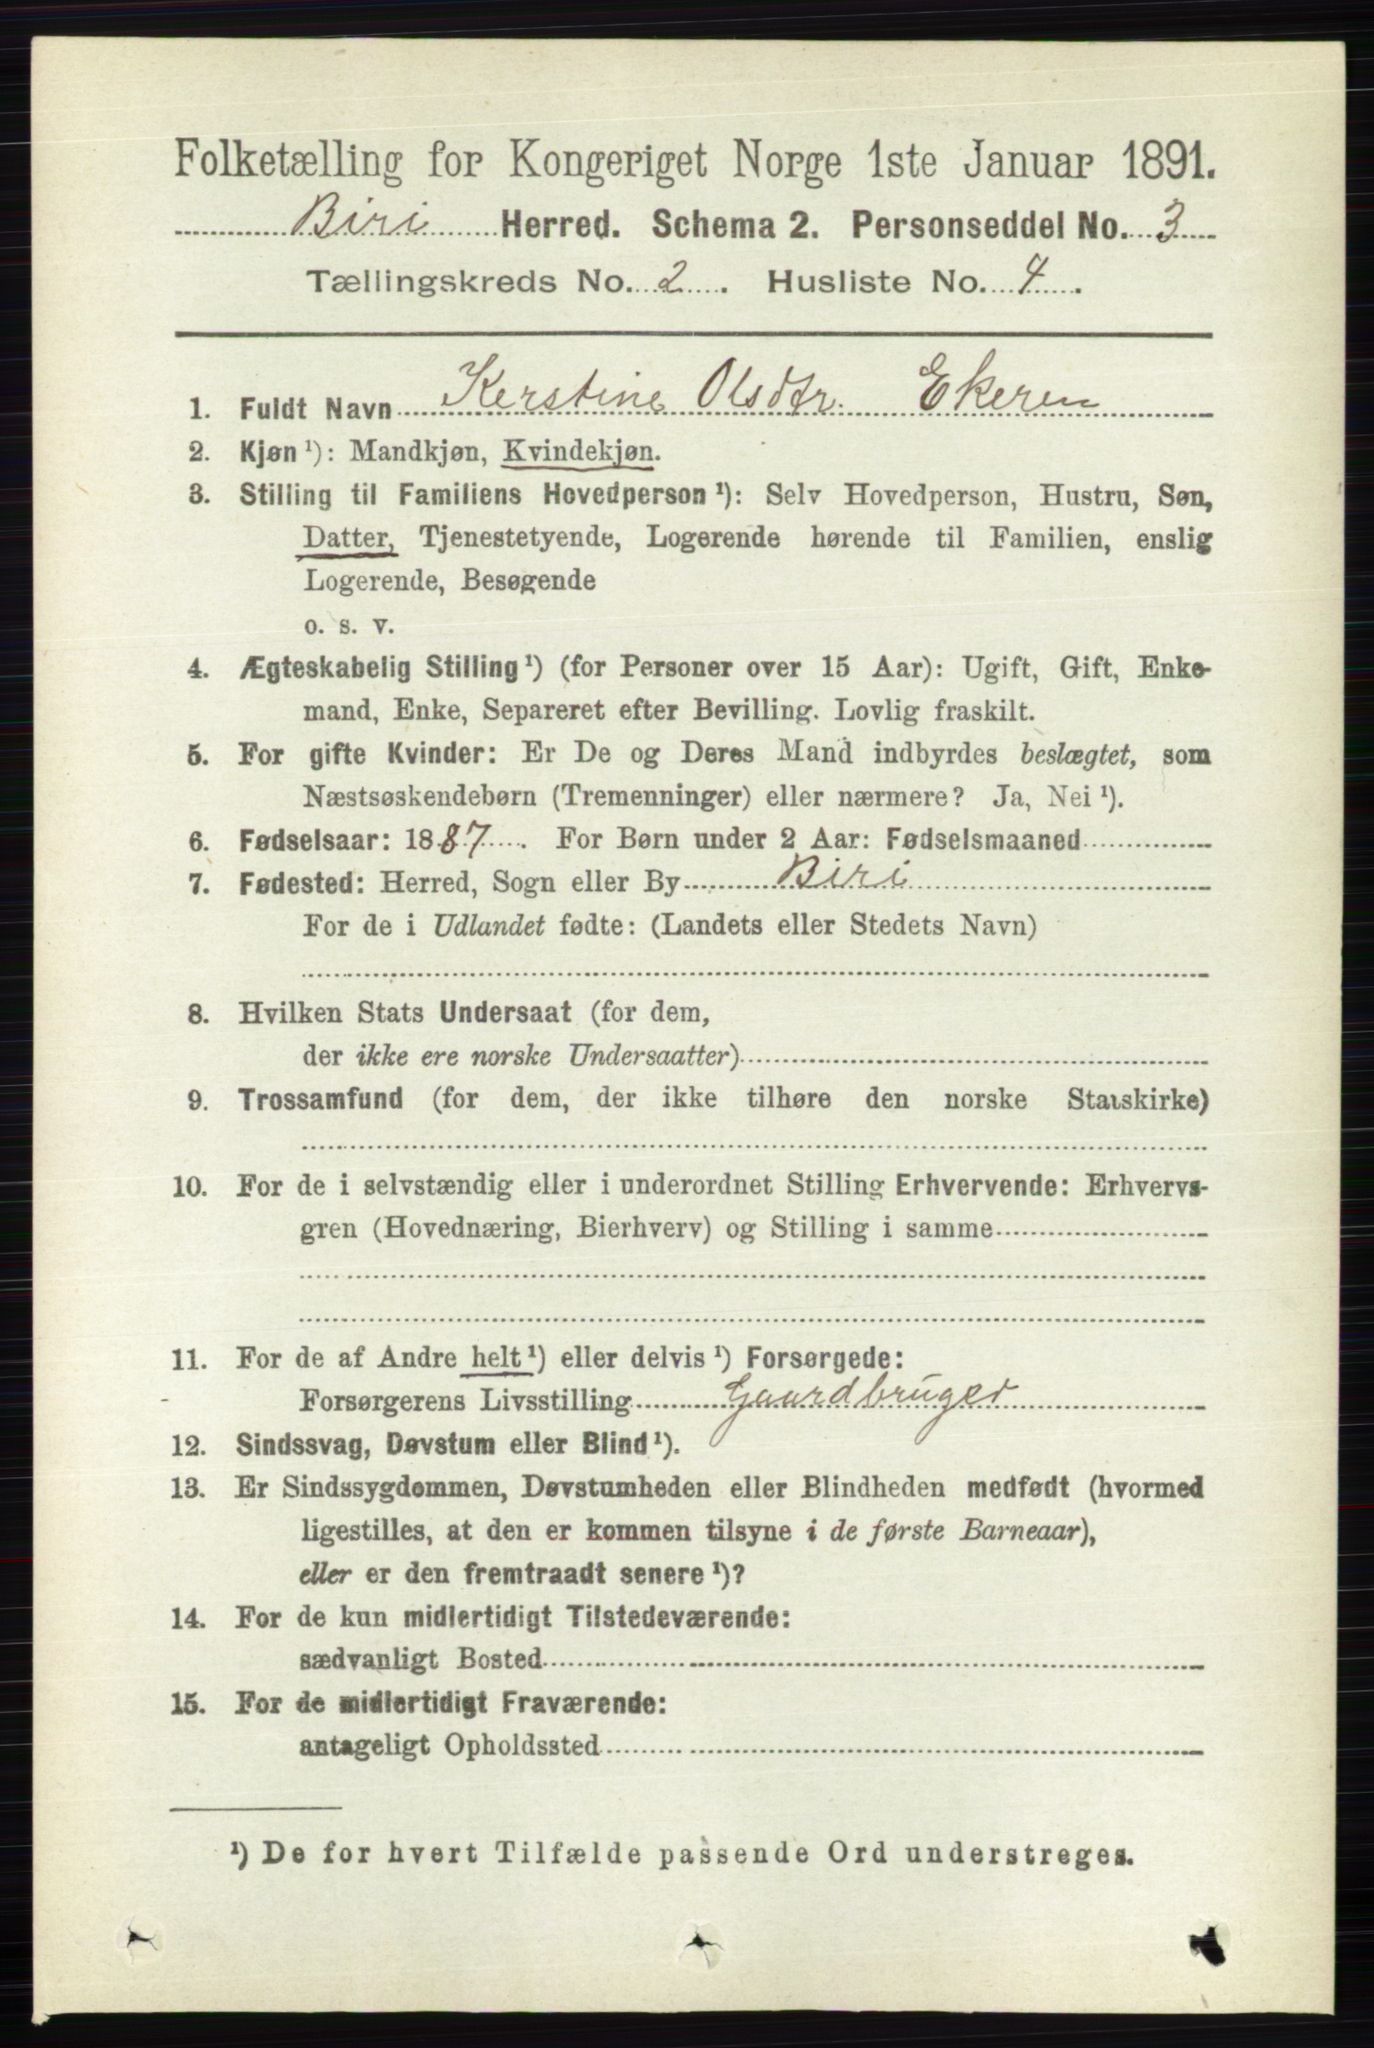 Folketælling for Kongeriget Norge 1ste Januar 1891.
Biri Herred. Schema 2. Personseddel No. 3
Tællingskreds No. 2. Husliste No. 4.
1. Fuldt Navn Kerstine Olsdtr. Ekeren
2. Kjøn ¹): Mandkjøn, Kvindekjøn.
3. Stilling til Familiens Hovedperson ¹): Selv Hovedperson, Hustru, Søn,
Datter, Tjenestetyende, Logerende hørende til Familien, enslig
Logerende, Besøgende
o. s. v.
4. Ægteskabelig Stilling ¹) (for Personer over 15 Aar): Ugift, Gift, Enke-
mand, Enke, Separeret efter Bevilling. Lovlig fraskilt.
5. For gifte Kvinder: Er De og Deres Mand indbyrdes beslægtet, som
Næstsøskendebørn (Tremenninger) eller nærmere? Ja, Nei ¹).
6. Fødselsaar: 1887. For Børn under 2 Aar: Fødselsmaaned
7. Fødested: Herred, Sogn eller By Biri
For de i Udlandet fødte: (Landets eller Stedets Navn)
8. Hvilken Stats Undersaat (for dem,
der ikke ere norske Undersaatter)
9. Trossamfund (for dem, der ikke tilhøre den norske Statskirke)
10. For de i selvstændig eller i underordnet Stilling Erhvervende: Erhvervs-
gren (Hovednæring, Bierhverv) og Stilling i samme
11. For de af Andre helt ¹) eller delvis ¹) Forsørgede:
Forsørgerens Livsstilling Gaardbruger
12. Sindssvag, Døvstum eller Blind ¹).
13. Er Sindssygdommen, Døvstumheden eller Blindheden medfødt (hvormed
ligestilles, at den er kommen tilsyne i de første Barneaar),
eller er den fremtraadt senere ¹)?
14. For de kun midlertidigt Tilstedeværende:
sædvanligt Bosted
15. For de midlertidigt Fraværende:
antageligt Opholdssted
¹) De for hvert Tilfælde passende Ord understreges.